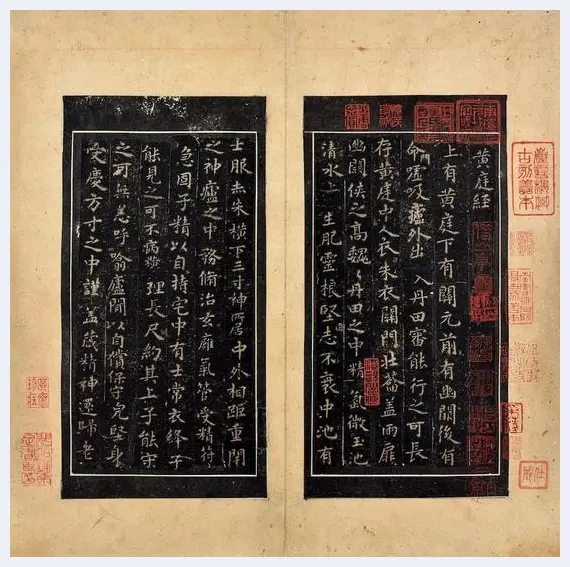 黃庭經
上有黃庭下有關元前有幽闕後有
命門噓吸廬外出入丹田審能行之可長
存黃庭中人衣朱衣關門壯蘥蓋兩扉
幽闕俠之高魏魏丹田之中精氣微玉池
清水上生肥靈根堅志不衰中池有
士服赤朱橫下三寸神所居中外相距重閉
之神廬之中務脩治玄廱氣管受精符
急固子精以自持宅中有士常衣絳子
能見之可不病橫理長尺約其上子能守
之可無恙呼噏廬間以自償保守皃堅身
受慶方寸之中謹蓋藏精神還歸老